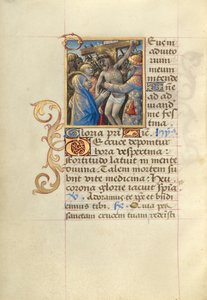 Deum
adiuto
rium
meum
intende
Dne
ad
ad
iuuand
me
fes
tina
Gloria pri
De cruce deponitur
hora vespertina:
fortitudo latuit in mente
diuina. Talem mortem su
biit vite medicina: heu
corona glorie iacuit
Adoramus te xpe et bndi
cimus tibi.
sanctam crucem tuam redemisti